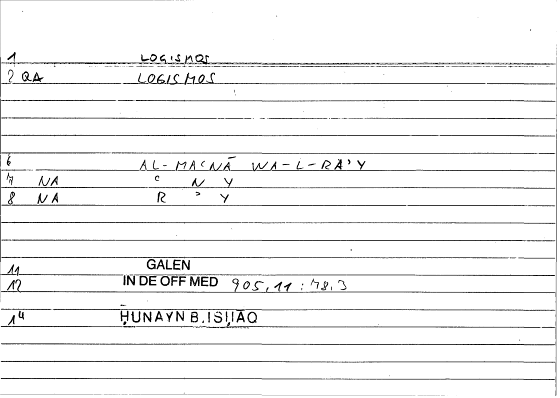 1 LOGISMOS
2 QA LOGISMOS
6 AL-MAʿNĀ WA-L-RAʾY
7 NA ʿ N Y
8 NA R ʾ Y
11 GALEN
12 IN DE OFF MED 905,11 : 78.3
14 ḤUNAYN B. ISḤĀQ